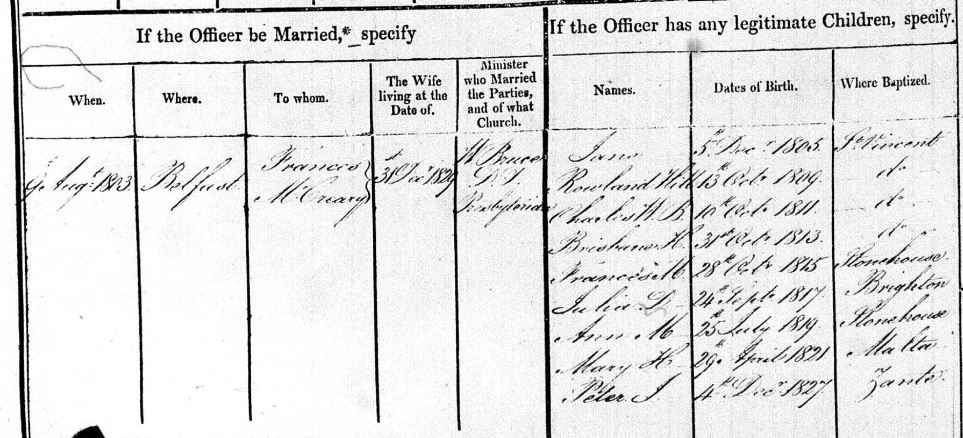 If the Officer be Married,* specify
If the Officer has any legitimate Children, specify.
When.
Where.
To whom.
The Wife
living at the
Date of.
Minister
who Married
the Parties,
and of what
Church.
Names.
Dates of Birth.
Where Baptized.
9 Augt 1803
Belfast
Frances
McCreary
31st Decr 1829
W. Bruce
Presbyterian
Jane 5th Decr 1805. St Vincent
Rowland Hill 13th Octr 1809. do
Charles W. B. 10th Octr 1811. do
Brisbane H. 31st Octr 1813. do
Frances M. 28th Octr 1815 Stonehouse
Julia D. 24th Septr 1817. Brighton
Ann M. 25th July 1819 Stonehouse
Mary H. 29th April 1821 Malta
Peter J. 4th Decr 1827. Zante.